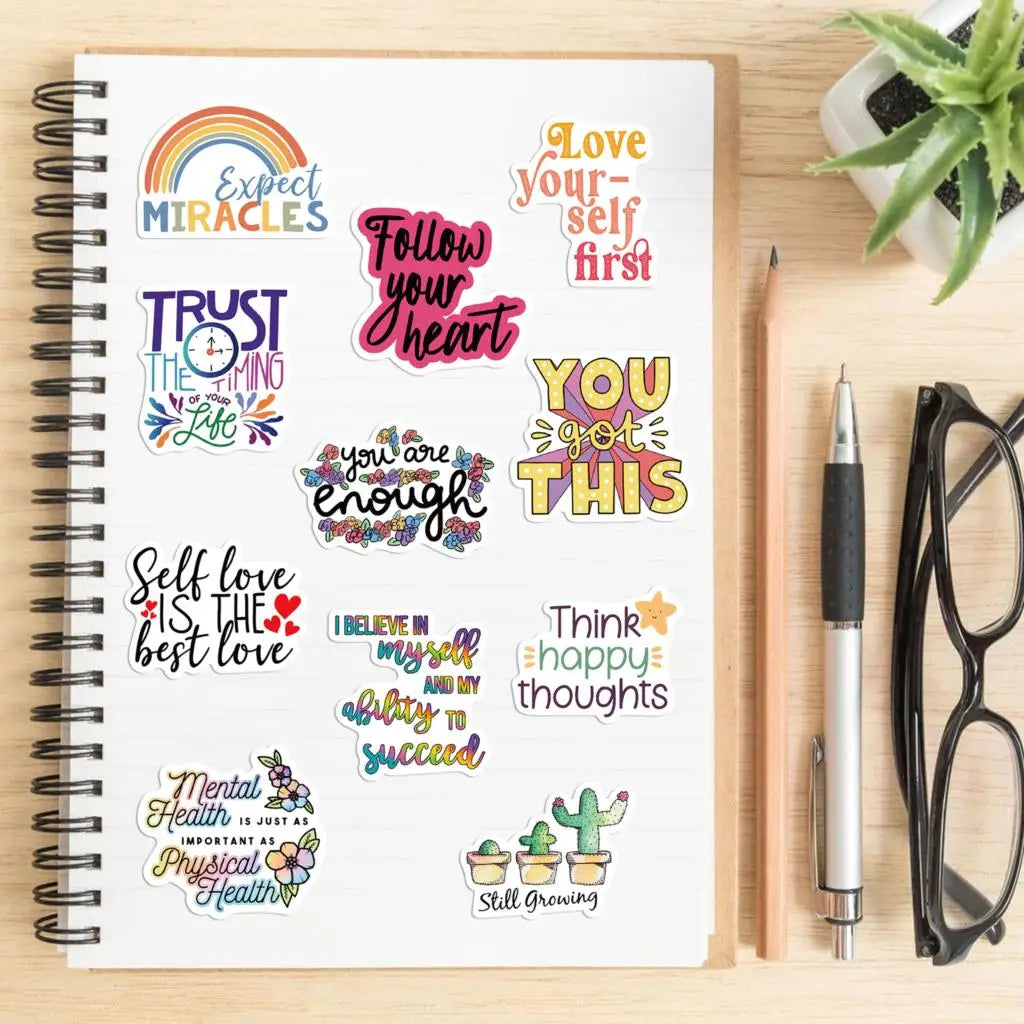 Expect
MIRACLES
Love
your-
self
first
Follow
your
heart
TRUST
THE TIMING
OF YOUR
Life
YOU
got
THIS
you are
enough
Self love
IS THE
best love
I BELIEVE IN
myself
AND MY
ability TO
succeed
Think
happy
thoughts
Mental
Health IS JUST AS
IMPORTANT AS
Physical
Health
Still Growing